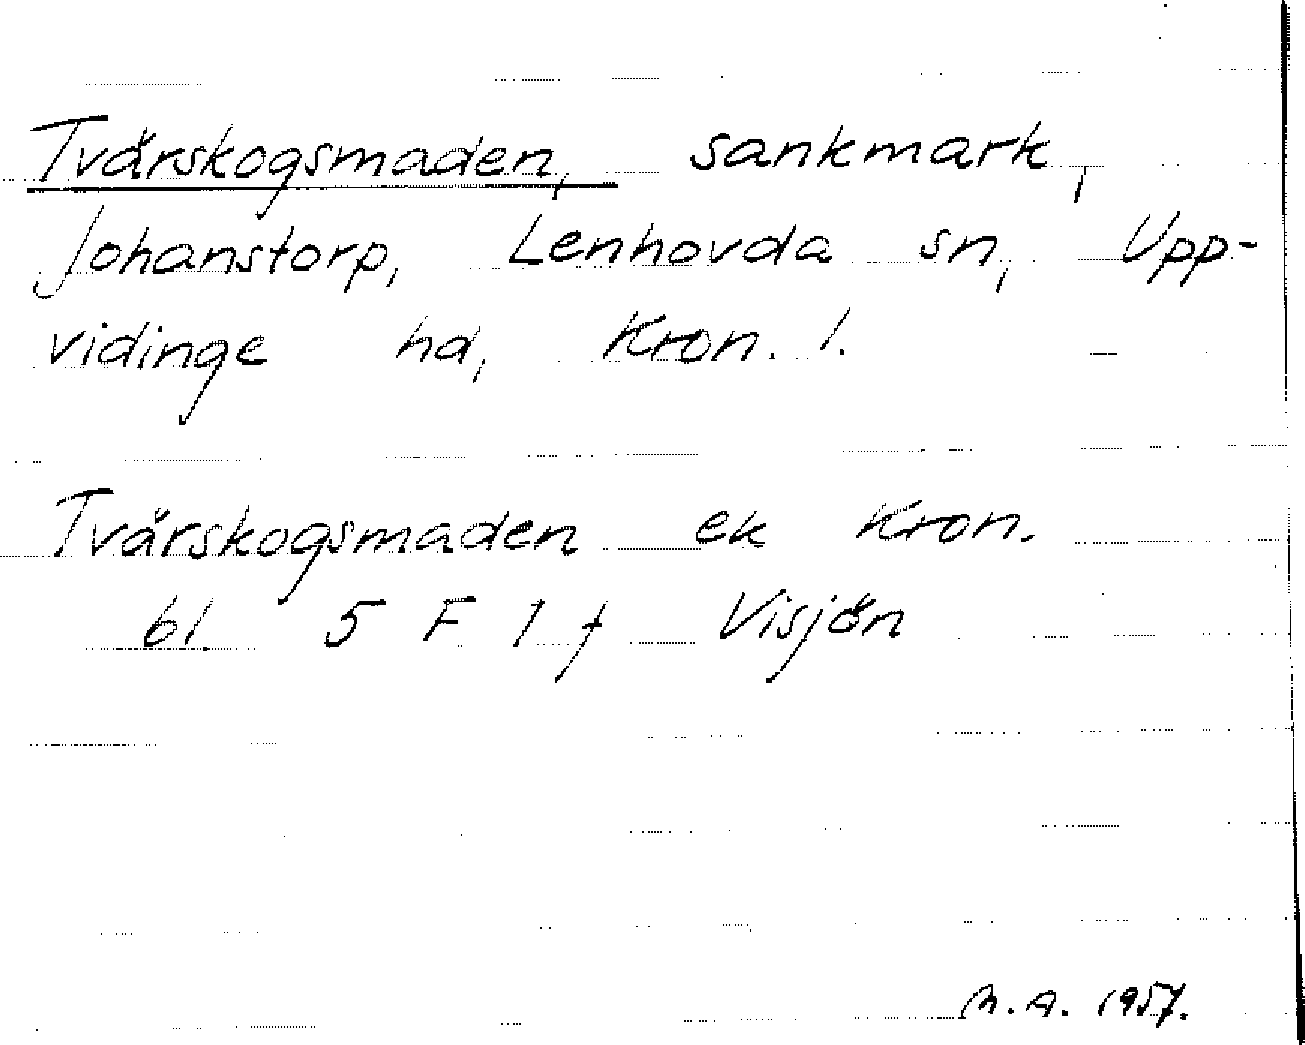 Tvärskogsmaden, sankmark,
Johanstorp, Lenhovda sn, Upp-
vidinge hd, Kron. l.
Tvärskogsmaden ek Kron.
bl. 5 F 1 f Visjön
M.A. 1957.